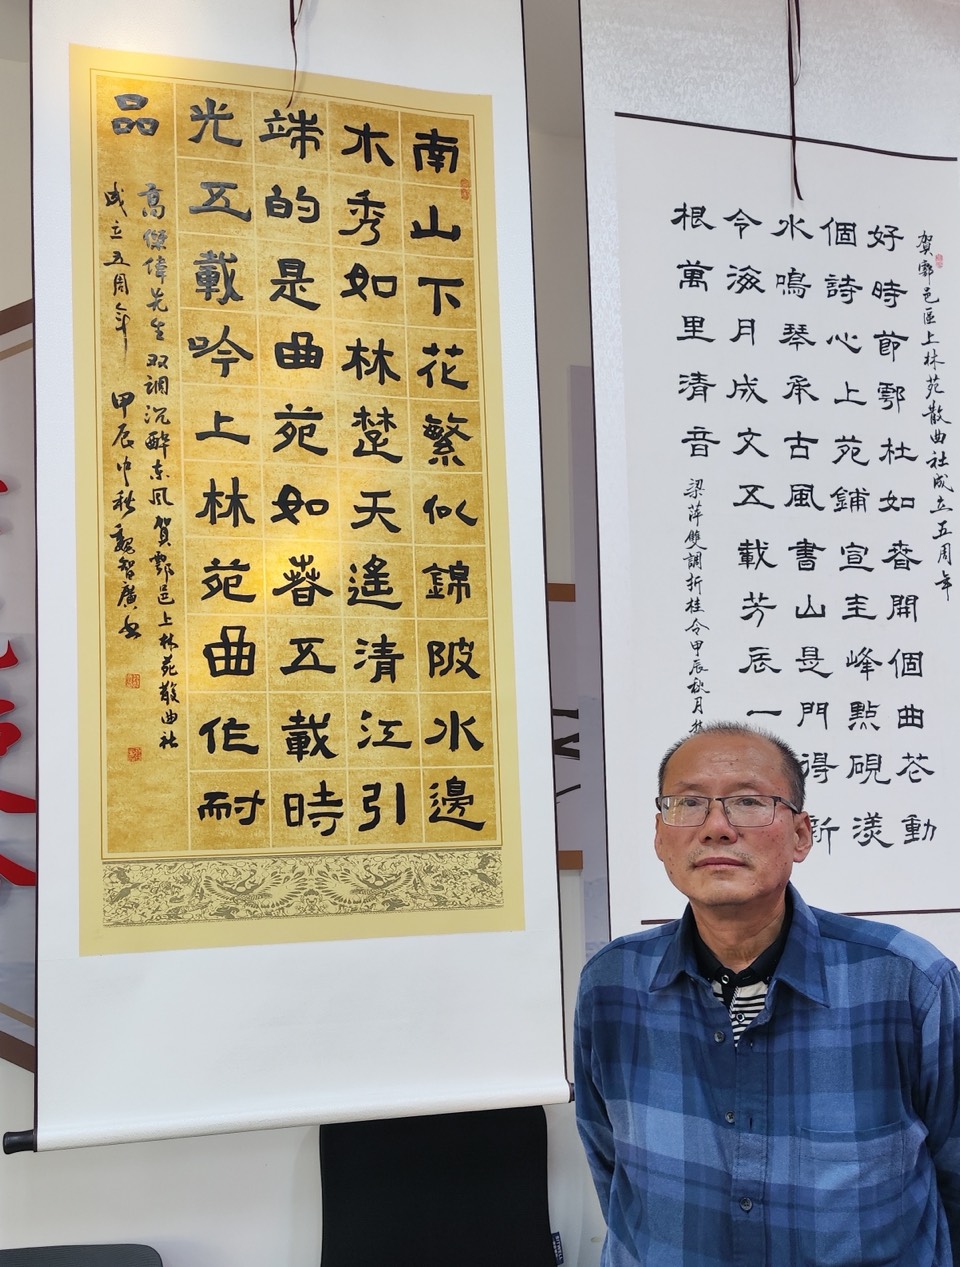 南山下花繁似錦陂水邊
木秀如林楚天遙清江引
端的是曲苑如春五載時
光五載吟上林苑曲作耐
品
高傑偉先生双調沉醉东风賀鄠邑上林苑散曲社
成立五周年 甲辰中秋魏智廣書
賀鄠邑區上林苑散曲社成立五周年
好時節鄠杜如春開個曲苍動
個詩心上苑鋪宣圭峰點硯漾
水鳴琴承古風書山是門得新
令海月成文五載芳辰一
根萬里清音
梁萍雙調折桂令甲辰秋月